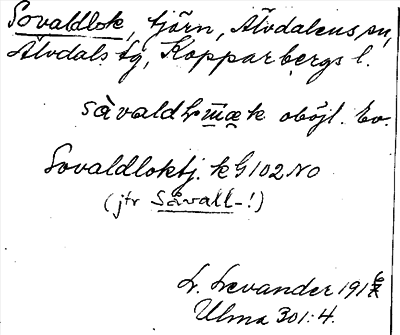 Sovaldlok, tjörn, Älvdalens sn,
Älvdals tg, Kopparbergs l.
oböjl.
Sovaldloktj. kG 102 NO
(jfr Såvall-!)
L. Levander
Ulma 301:4.